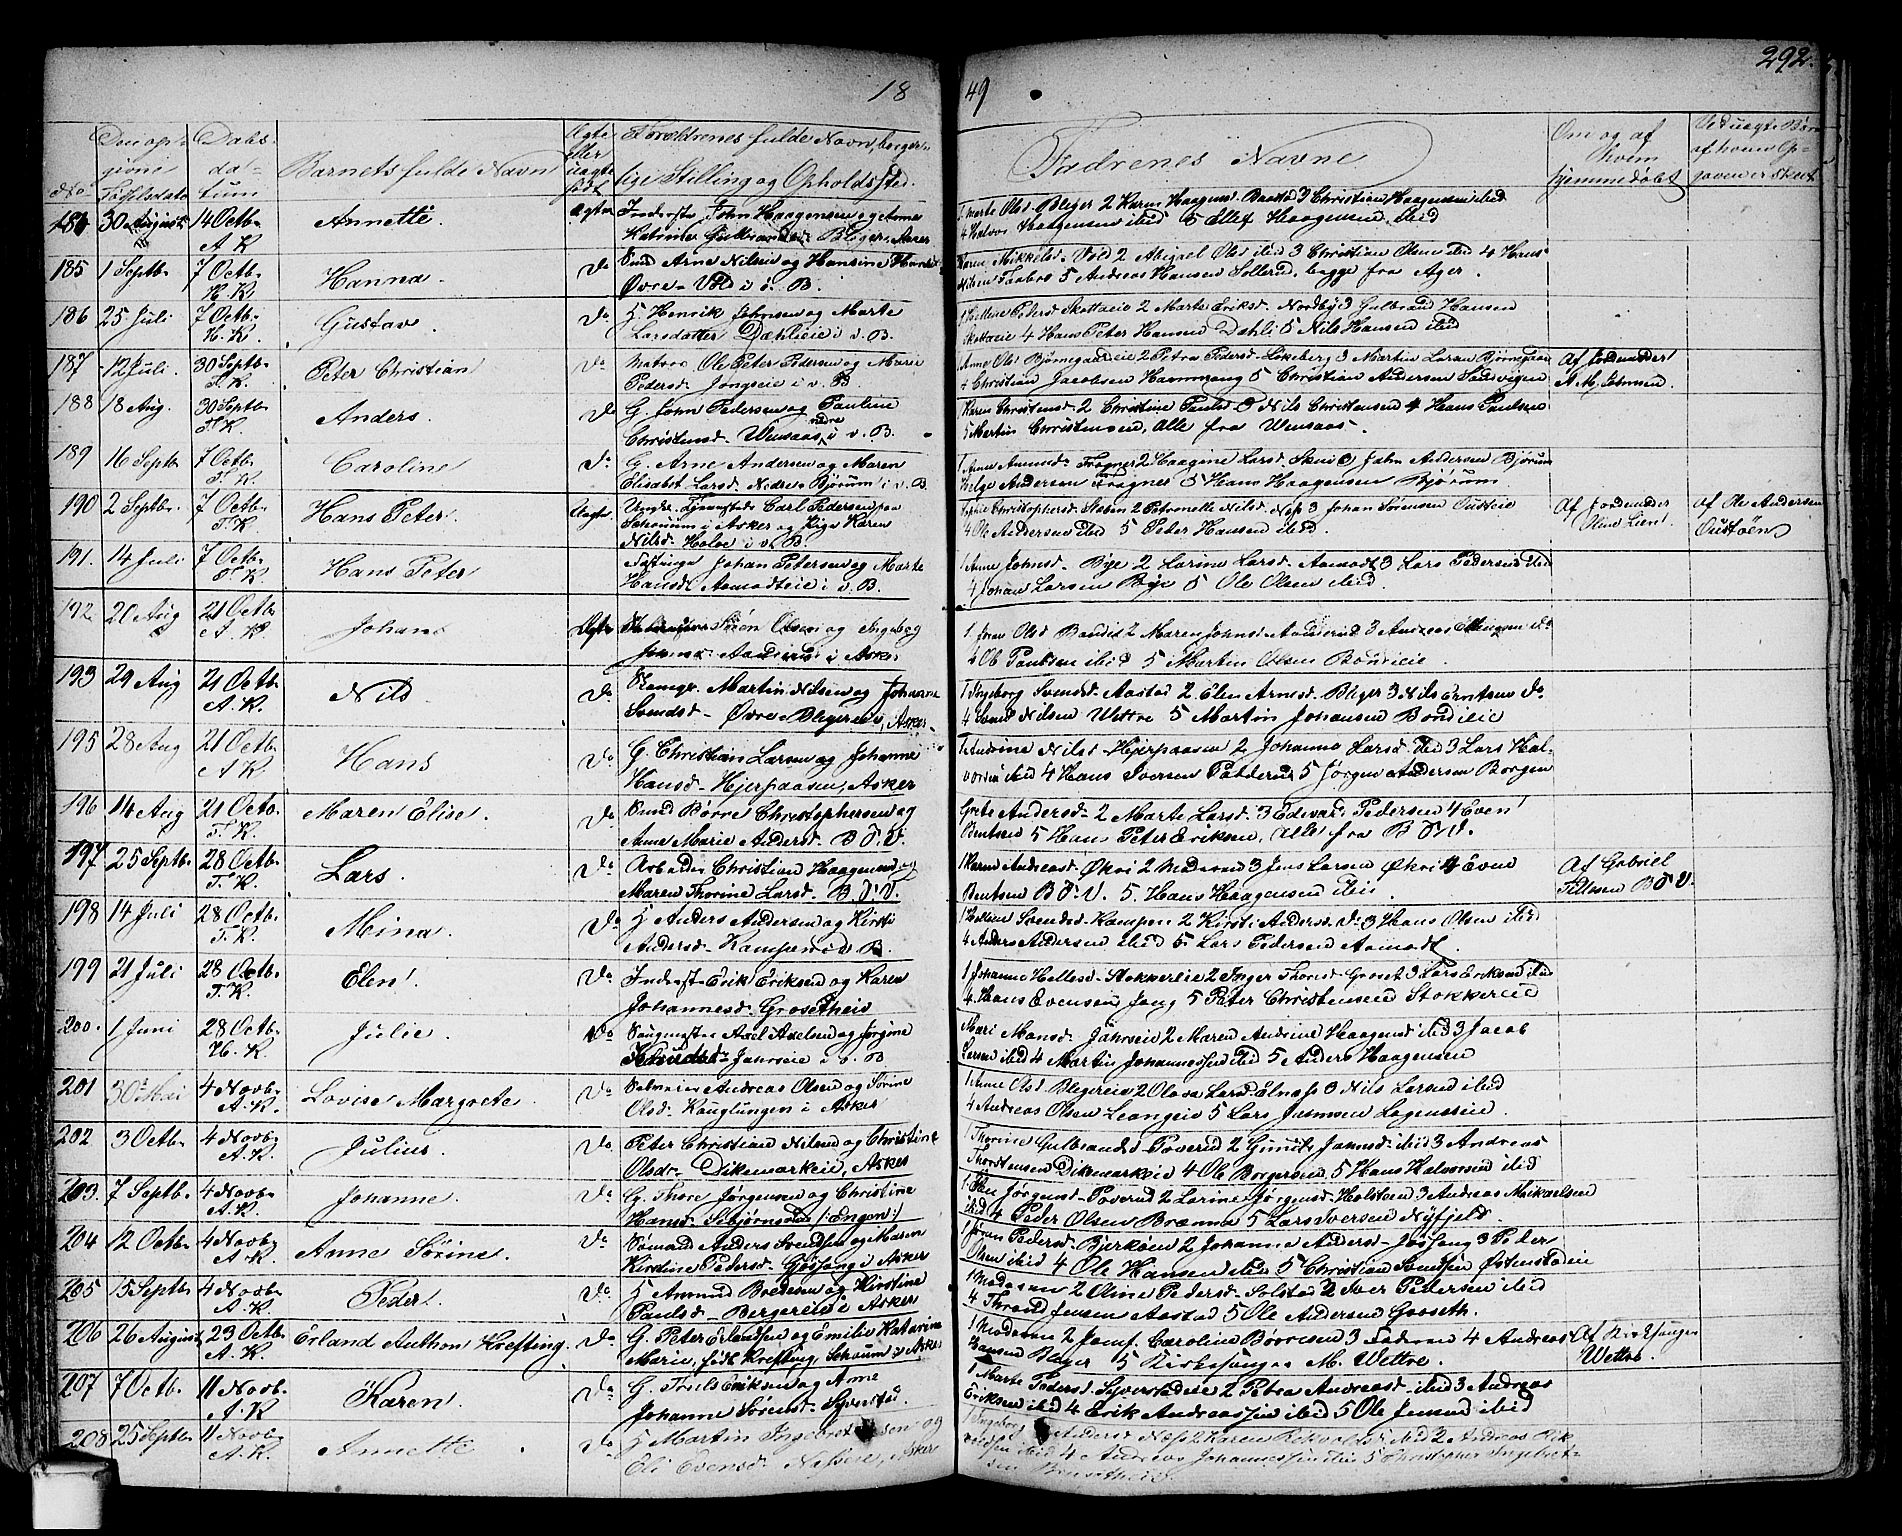 18 49
292.
No.
Den opgivne Fødselsdato
Daabsdatum
Barnets fulde Navn
Ægte eller uægte født
Forældrenes fulde Navn, borgerlige Stilling og Opholdssted.
Fadrenes Navne
Om og af hvem hjemmedøbt
Ved uægte Børn af hvem Opgaven er skeet
30 August 14 Octb. A. K. Annette. Ægte Inderste John Haagensen og Anne
Katrine Gulbrandsd. Bleger, Asker
1. Marte Olsd Bleger 2 Karen Haagensd. Baastd 3 Christian Haagensen ibid
4 Halvor Haagensen ibid 5 Ellef Haagensen, ibid
185 1 Septb. 7 Octb. H. K. Hanna. Do Smd Arne Nilsen og Hansine
Øvre Vøld i v. B.
Karen Mikkelsd. Vøld 2 Abigael Olsd ibid 3 Christian Olsen ibid 4 Hans
Nilsen Taabro 5 Andreas Hansen Sollerud, begge fra Ager.
186 25 Juli 7 Octb. H. K. Gustav. Do H. Henrik Johnsen og Marte
Larsdatter Dahlieie i v. B.
Pedersd Skottaeie 2 Marte Eriksd. Nordby 3 Gulbrand Hansen
Skottaeie 4 Hans Peter Hansen Dahli 5 Nils Hansen ibid
187 12 Juli. 30 Septb. T. K. Peter Christian Do Matros Ole Peter Pedersen og Marie
Pedersd. Jongseie i v. B.
Anne Olsd Bjørnegaardeie 2 Petra Pedersd. Løkeberg 3 Martin Larsen Bjørnegaard
4 Christian Jacobsen Hammang 5 Christian Andersen Sandvigen
Af Jordmoder
A. M. Johnsen.
188 18 Aug. 30 Septb. T. K. Anders. Do G. John Pedersen og Pauline
Christensd. Wensaas nedre i v. B.
Karen Christensd. 2 Christine Paulsd 3 Nils Christensen 4 Hans Paulsen
5 Martin Christensen, Alle fra Wensaas.
189 16 Septb. 7 Octb. T. K. Caroline Do G. Arne Andersen og Maren
Elisabet Larsd. Nedre Bjørum i v. B.
1 Anne Amundsd. Fragner 2 Haagine Larsd. Skui 3 John Andersen Bjørum
Helge Andersen Fragner 5 Hans Haagensen Bjørum.
190 2 Septb. 7 Octb. T. K. Hans Peter. Ægte Ungk. Tjenestede Carl Pedersen
i Asker og Pige Karen
Nilsd. Holoe i v. B.
Sophie Christophersd. 2 Petronelle Nilsd. Næs 3 Johan Sørensen Oustøie
4 Ole Andersen ibid 5 Peter Hansen ibid.
Af Jordmoder
Oline Lien.
Af Ole Andersen
Oustøen
191. 14 Juli 7 Octb. T. K. Hans Peter Johan Petersen og Marte
Hansd. Aamodteie i v. B.
1 Anne Johnsd. Bye 2 Larine Larsd. Aamodt 3 Lars Pedersen ibid
4 Johan Larsen Bye 5 Ole Olsen ibid.
192 20 Aug 21 Octb. A. K. Johan Ægte Søren Olsen og Ingeborg
Aanderud i Asker
1. Olsd Bondie 2 Maren Johnsd. Aanderud 3 Andreas Ellingsen do
4 Ole Paulsen ibid 5 Martin Olsen Bondieie.
193 29 Aug 21 Octb. A. K. Nils Do Martin Nilsen og Johanne
Svendsd. Øvre Blegereie, Asker.
1 Ingeborg Svendsd. Aastad 2 Elen Arnesd. Bleger 3 Nils Arntsen do.
4 Nilsen Wettre 5 Martin Johansen Bondieie
195 28 Aug 21 Octb. A. K. Hans Do G. Christian Larsen og Johanne
Hansd. Hjerpaasen, Asker
1 Andrine Nilsd Hjerpaasen 2 Johanne Larsd. ibid 3 Lars Halvorsen
ibid 4 Hans Iversen Palderud 5 Jørgen Andersen Borgen
196 14 Aug 21 Octb. T. K. Maren Elise. Do Smd Børre Christophersen og
Anne Marie Andersd. B. & V.
Grete Andersd. 2 Marte Larsd. 3 Edvard Pedersen 4 Even
Bentsen 5 Hans Peter Eriksen, Alle fra B. & V.
197 25 Septb. 28 Octb. T. K. Lars. Do Arbeider Christian Haagensen og
Maren Thorine Larsd. B. & V.
1 Karen Andreasd. Økri 2 Moderen 3 Jens Larsen Økri 4 Even
Bentsen B. & V. 5 Hans Haagensen ibid
Af Gabriel
Tellefsen B & V.
198 14 Juli 28 Octb. T. K. Mina. Do H Anders Andersen og Kirsti
Andersd. Kampen i v. B.
1 Svendsd. Kampen 2 Kirsti Andersd. do 3 Hans Olsen ibid
4 Anders Andersen ibid 5 Lars Pedersen Aamodt.
199 21 Juli 28 Octb. T. K. Elen. Do Inderst Erik Eriksen og Karen
Johannesd. Grosetheie
1 Johanne Hellesd. Stokkereie 2 Inger Thoresd. Groset 3 Lars Eriksen ibid
4. Hans Evensen Jong 5 Peter Christensen Stokkereie
200. 1 Juni 28 Octb. H. K. Julie Do Axel Axelsen og Jørgine
Jahrseie i v. B
Mari Mansd. Jahrseie 2 Maren Andrine Haagensd ibid 3 Jacob
Larsen ibid 4 Martin Johannessen ibid 5 Anders Haagensen
201 30 Mai 4 Novb. A. K. Lovise Margrete. Do Andreas Olsen og Sørine
Olsd. Kauglungen i Asker
1 Anne Olsd Blegereie 2 Olava Larsd. Elnæss 3 Nils Larsen ibid
4 Andreas Olsen Leangeie 5 Lars Jensen
202 3 Octb. 4 Novb. A. K. Julius. Do Peter Christian Nilsen og Christine
Olsdr. Dikemarkeie, Asker
1 Thorine Gulbrandsd Poverud 2 Gunild Jansd. ibid 3 Andreas
Thorstensen Dikemarkeie 4 Ole Borgersen 5 Hans Halvorsen ibid
203. 7 Septb. 4 Novb. A. K. Johanne. Do G. Thore Jørgensen og Christine
Hansd. (:Engen:)
Jørgensd. Poverud 2 Larine Jørgensd. Holstad 3 Andreas Mikaelsen
ibid 4 Peder Olsen Brænna 5 Lars Iversen Nyfjeld.
204 12 Octb. 4 Novb. A. K. Anne Sørine. Do Sømand Anders Svendsen og Maren
Kirstine Pedersd. Gjøssang i Asker
1 Jøran Pedersd. Bjerkøen 2 Johanne Andersd. Jøssang 3 Peder
Olsen ibid 4 Ole Hansen ibid 5 Christian Svendsen Østenstadeie
205 15 Septb. 4 Novb. A. K. Peder. Do H Amund Bredesen og Kirstine
Paulsd. Bergereie i Asker
1 Moderen 2 Oline Pedersd. Solstad 3 Iver Pedersen ibid
4 Thrond Jensen Aastad 5 Ole Andersen Grosseth.
206 26 August 23 Octb. A. K. Erland Anthon Krefting. Do G. Peter Erlandsen og Emilie Katarine
Marie, født Krefting, i Asker
1 Moderen 2 Jomf. Caroline Børresen 3 Faderen 4 Andreas
Hansen Bleger 5 Kirkesanger M. Wettre.
Af Kirkesanger
Wettre.
207 7 Octb. 11 Novb. A. K. Karen. Do G. Eriksen og Anne
Johanne Sørensd. Syverstad.
1 Marte Pedersd. Syverstadeie 2 Petra Andreasd. ibid 3 Andreas
Eriksen ibid 4 Erik Andreassen ibid 5 Ole Jensen ibid
208 25 Septb. 11 Novb. A. K. Annette Do H Martin Ingebretsen og
Eli Evensd. Næseie, Asker
1 Ingeborg Andersd Næs 2 Karen ibid 3 Andreas
ibid 4 Andreas Johannessen ibid 5 Christopher Ingebretsen